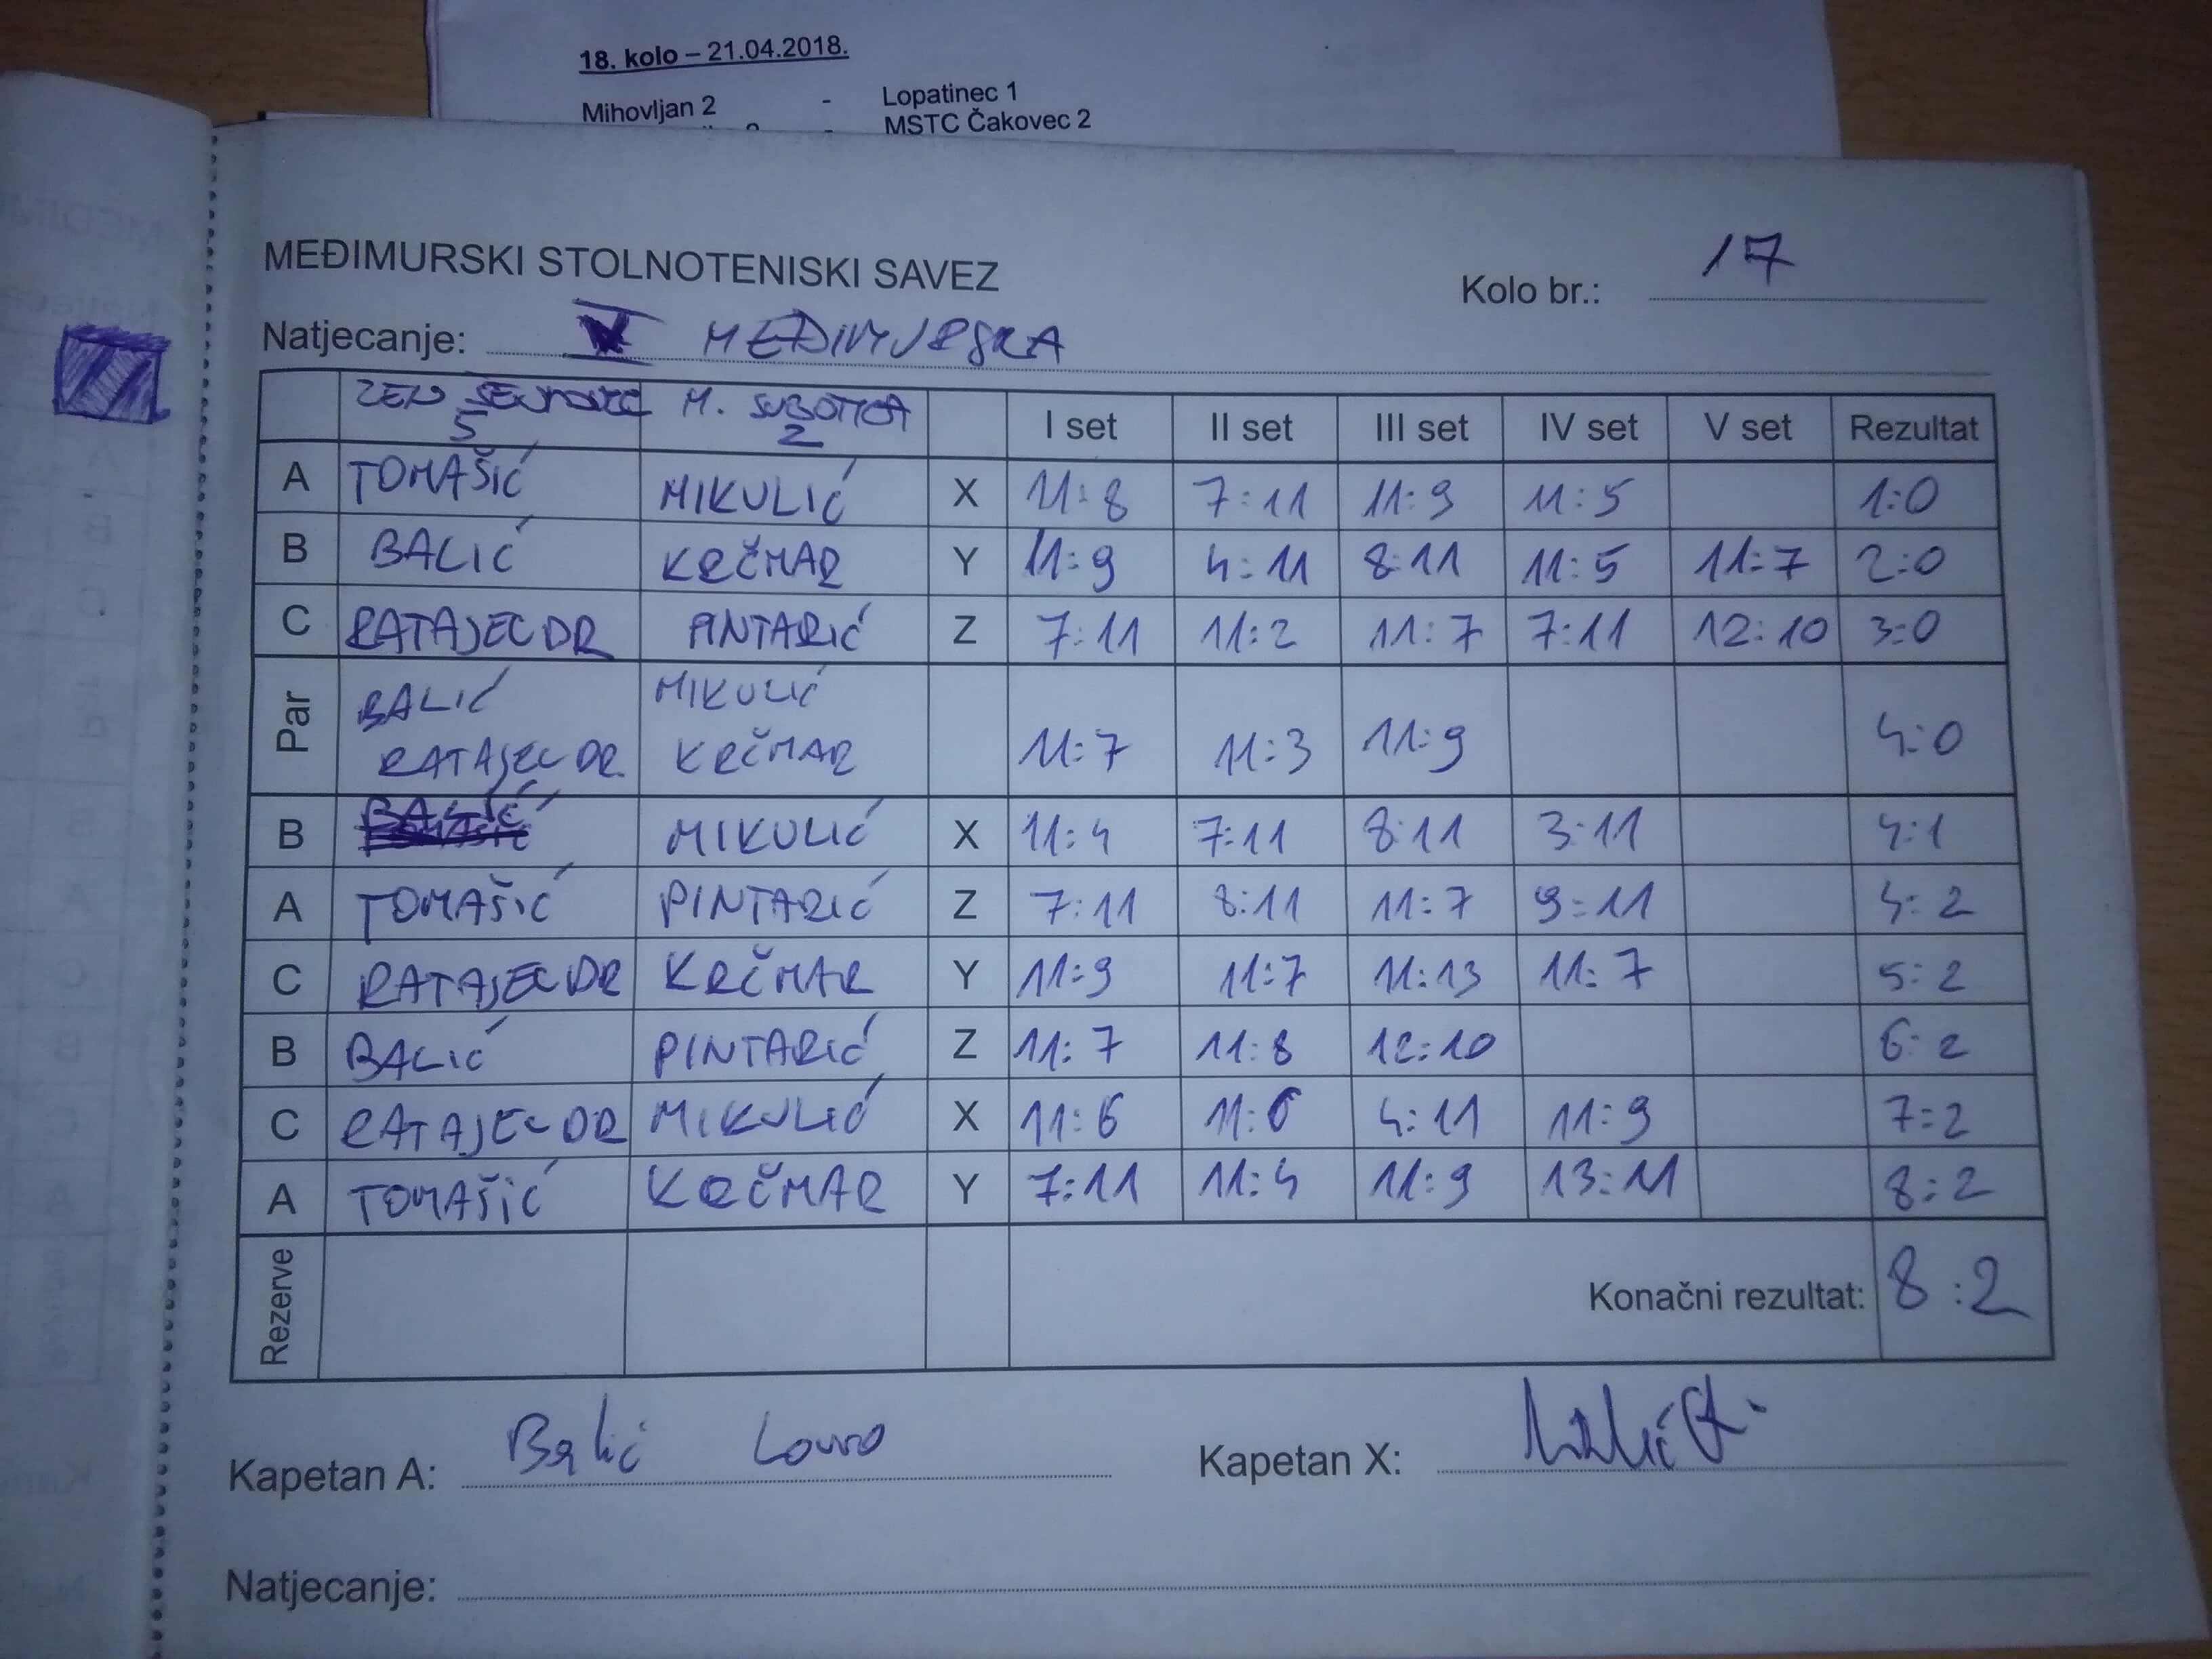 18. kolo – 21.04.2018.
Mihovljan 2 - Lopatinec 1
- MSTC Čakovec 2
MEĐIMURSKI STOLNOTENISKI SAVEZ
Kolo br.: 17
Natjecanje: MEĐIMURSKA
M. SUBOTICA I set II set III set IV set V set Rezultat
5 2
A TOMAŠIĆ MIKULIĆ X 11:8 7:11 11:9 11:5 1:0
B BALIĆ KRČMAR Y 11:9 4:11 8:11 11:5 11:7 2:0
C RATAJEC DR PINTARIĆ Z 7:11 11:2 11:7 7:11 12:10 3:0
Par BALIĆ MIKULIĆ
RATAJEC DR. KRČMAR 11:7 11:3 11:9 4:0
B BALIĆ MIKULIĆ X 11:4 7:11 8:11 3:11 4:1
A TOMAŠIĆ PINTARIĆ Z 7:11 8:11 11:7 9:11 4:2
C RATAJEC DR KRČMAR Y 11:9 11:7 11:13 11:7 5:2
B BALIĆ PINTARIĆ Z 11:7 11:8 12:10 6:2
C RATAJEC DR MIKULIĆ X 11:6 11:6 4:11 11:9 7:2
A TOMAŠIĆ KRČMAR Y 7:11 11:4 11:9 13:11 8:2
Rezerve Konačni rezultat: 8:2
Kapetan A: Balić Lovro Kapetan X:
Natjecanje: